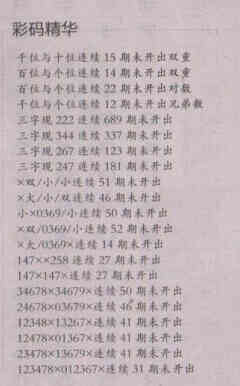 彩码精华
千位与十位连续 15 期未开出双重
百位与个位连续 14 期未开出双重
百位与个位连续 22 期未开出对数
千位与个位连续 12 期未开出兄弟数
三字现 222 连续 689 期未开出
三字现 344 连续 337 期未开出
三字现 267 连续 123 期未开出
三字现 247 连续 181 期未开出
×双/小/小连续 51 期未开出
×大/小/双连续 46 期未开出
小×0369/小连续 50 期未开出
×双/0369/小连续 52 期未开出
×大/0369×连续 14 期未开出
147××258 连续 27 期未开出
147×147×连续 27 期未开出
34678×34679×连续 50 期未开出
24678×03679×连续 46 期未开出
12348×13267×连续 41 期未开出
12478×01367×连续 41 期未开出
23478×13679×连续 41 期未开出
123478×012367×连续 31 期未开出